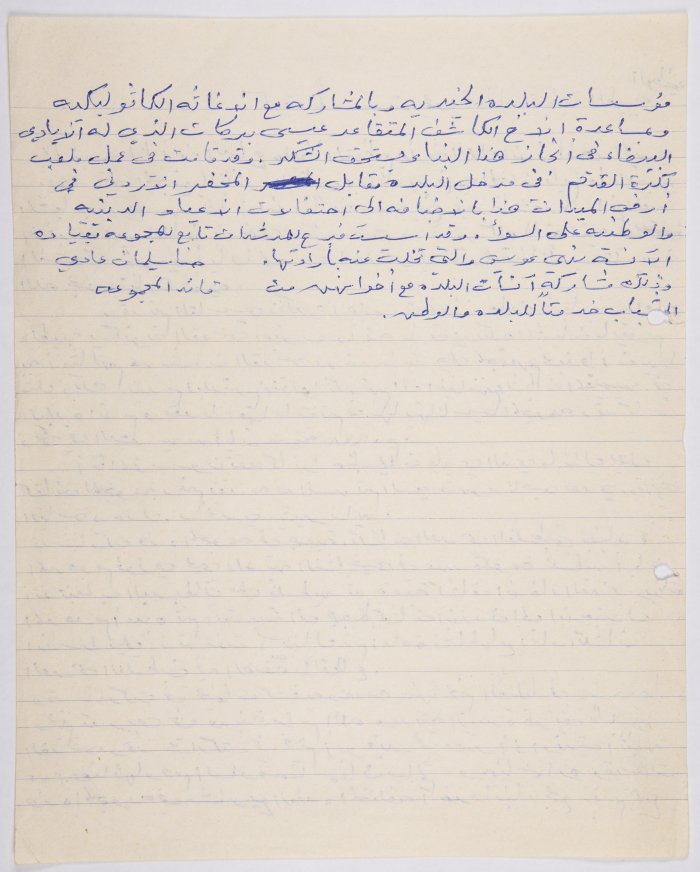 مؤسسات البلده الخيريه وبالمشاركه مع الاغاثه الكاثوليكيه
وبمساعدة الاخ الكاشف المتقاعد عيسى بركات الذي له الايادي
البيضاء في انجاز هذا البناء ويستحق الشكر. وقد قامت في عمل ملعب
لكرة القدم في مدخل البلدة مقابل المخفر الاردني في
ارض الميدان هذا بالاضافه الى احتفالات الاعياد الدينيه
والوطنيه على السواء. وقد اسست فرع للمرشدات تابع للمجموعه بقياده
الآنسة والتي تخلت عنه بارادتها. حنا سليمان عادي
وذلك مشاركة آنسات البلده مع أخوانهن من قائد المجموعه
الشباب خدمتاً للبلده والوطن.